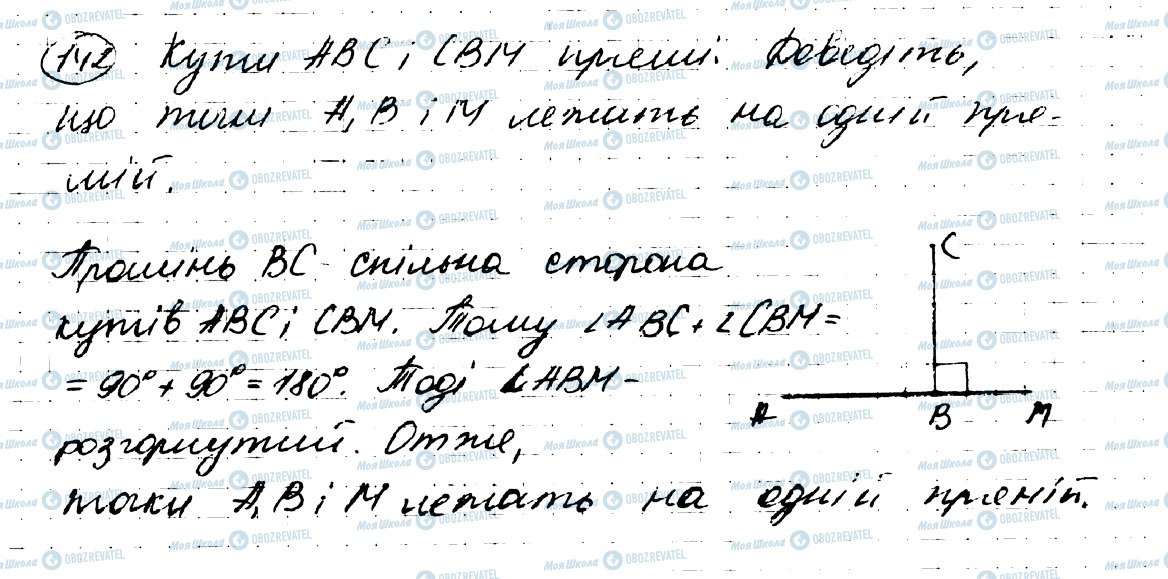 142 Кути ABC і CBM прямі. Доведіть,
що точки A, B і M лежать на одній пря-
мій.
Промінь BC спільна сторона
кутів ABC і CBM. Тому ∠ABC + ∠CBM =
= 90° + 90° = 180°. Тоді ∠ABM -
розгорнутий. Отже,
точки A, B і M лежать на одній прямій.
C
A B M
Моя Школа OBOZREVATEL